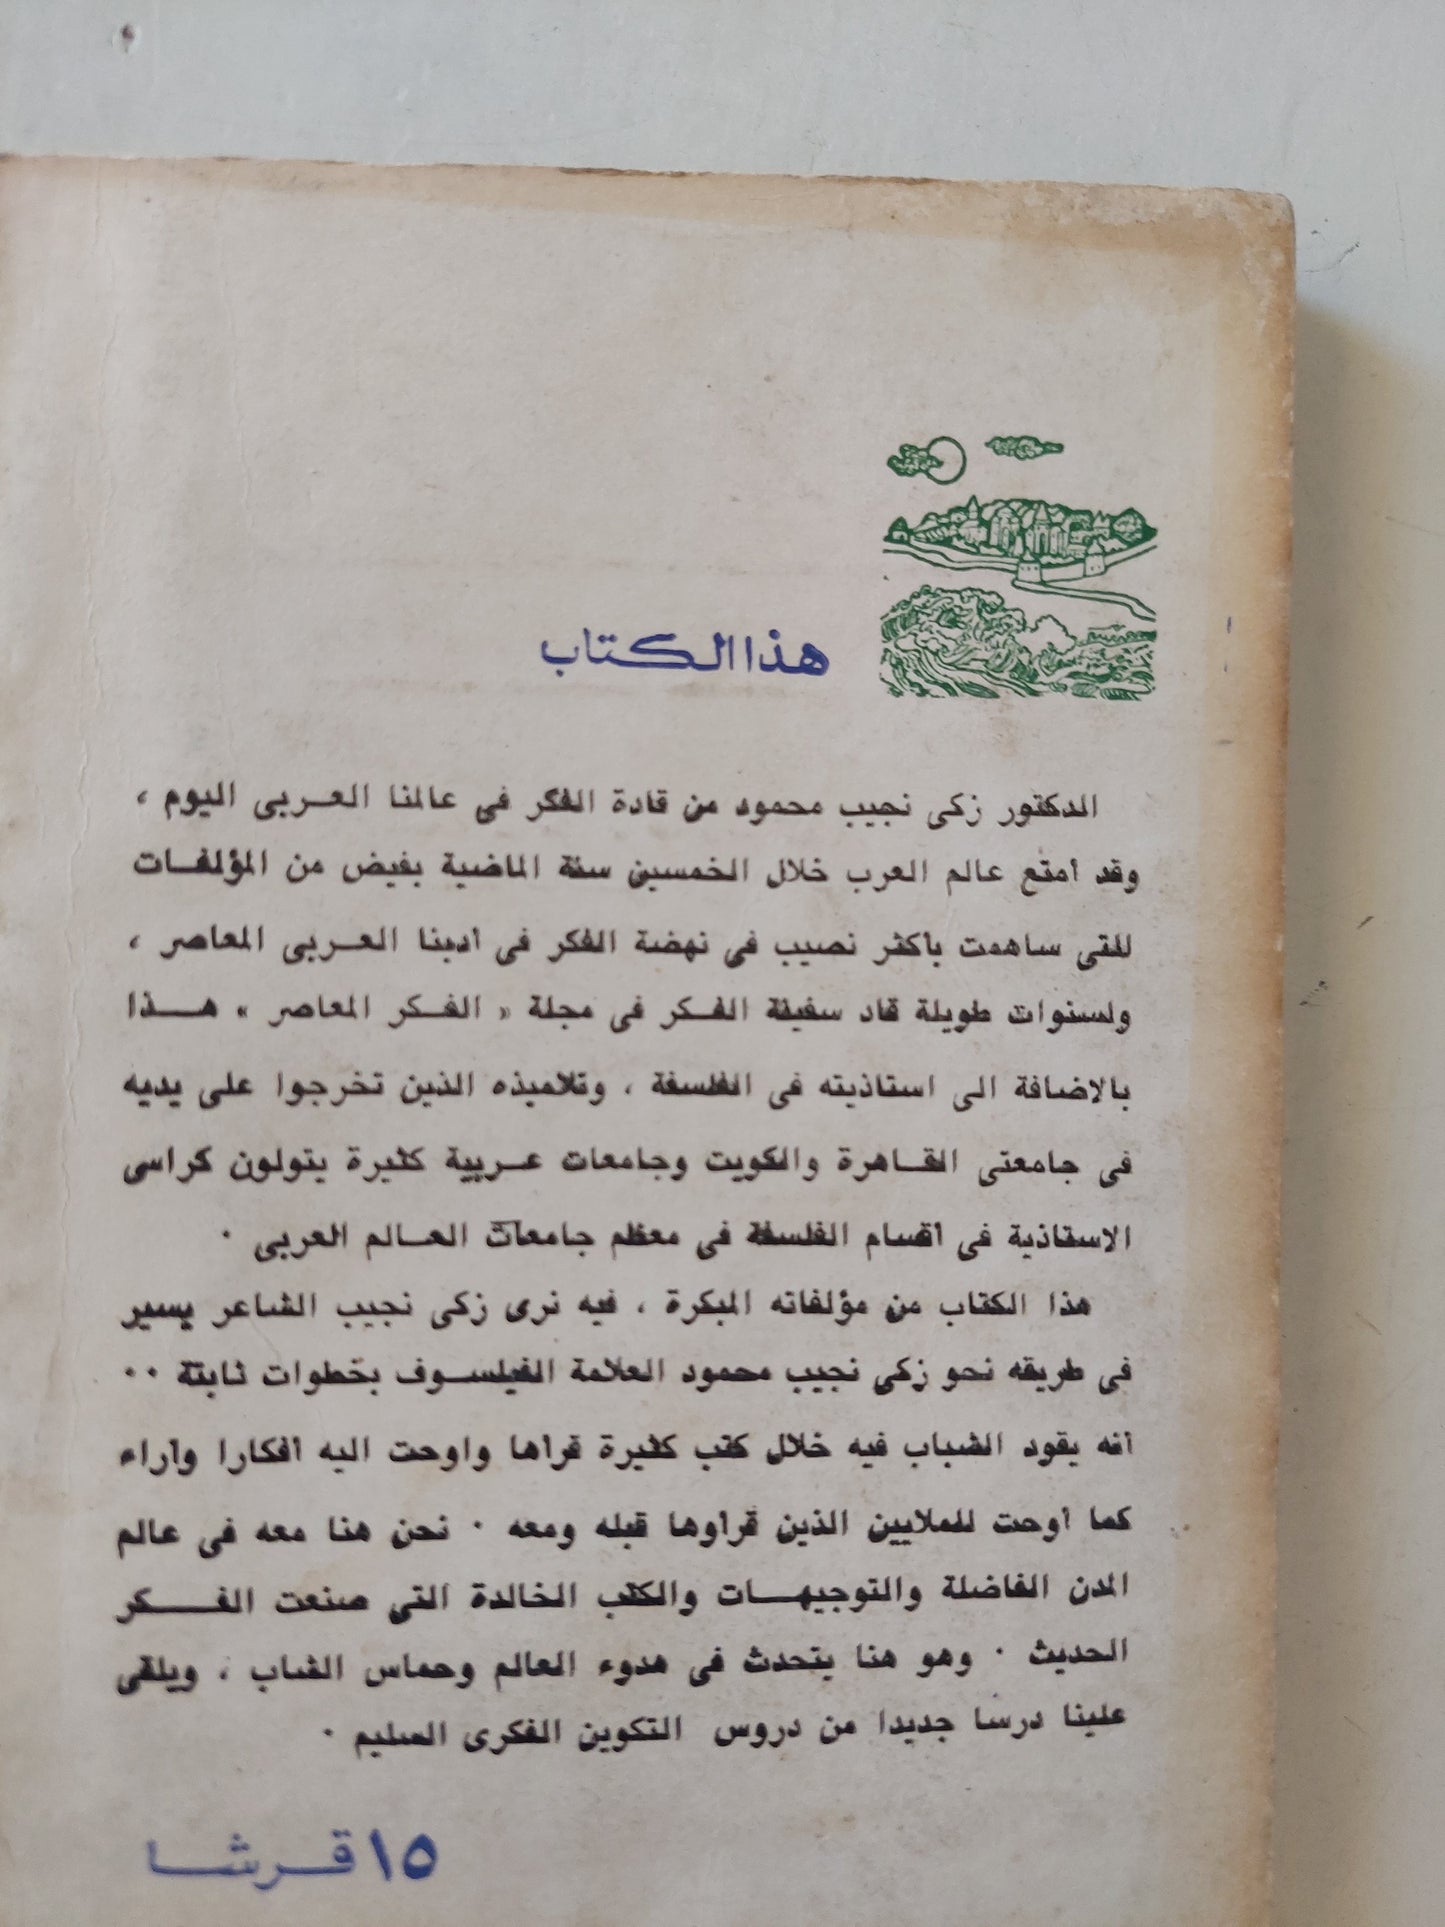 هذا الكتاب
الدكتور زكى نجيب محمود من قادة الفكر فى عالمنا العربى اليوم ،
وقد أمتع عالم العرب خلال الخمسين سنة الماضية بفيض من المؤلفات
للتى ساهمت بأكثر نصيب فى نهضة الفكر فى أدبنا العربى المعاصر ،
ولسنوات طويلة قاد سفينة الفكر فى مجلة « الفكر المعاصر » هذا
بالاضافة الى استاذيته فى الفلسفة ، وتلاميذه الذين تخرجوا على يديه
فى جامعتى القاهرة والكويت وجامعات عربية كثيرة يتولون كراسى
الاستاذية فى أقسام الفلسفة فى معظم جامعات العالم العربى ٠
هذا الكتاب من مؤلفاته المبكرة ، فيه نرى زكى نجيب الشاعر يسير
فى طريقه نحو زكى نجيب محمود العلامة الفيلسوف بخطوات ثابتة ٠٠
أنه يقود الشباب فيه خلال كتب كثيرة قرأها واوحت اليه أفكارا وآراء
كما أوحت للملايين الذين قرأوها قبله ومعه ٠ نحن هنا معه فى عالم
المدن الفاضلة والتوجيهات والكتب الخالدة التى صنعت الفكر
الحديث ٠ وهو هنا يتحدث فى هدوء العالم وحماس الشاب ، ويلقى
علينا درسا جديدا من دروس التكوين الفكرى السليم ٠
١٥ قرشا